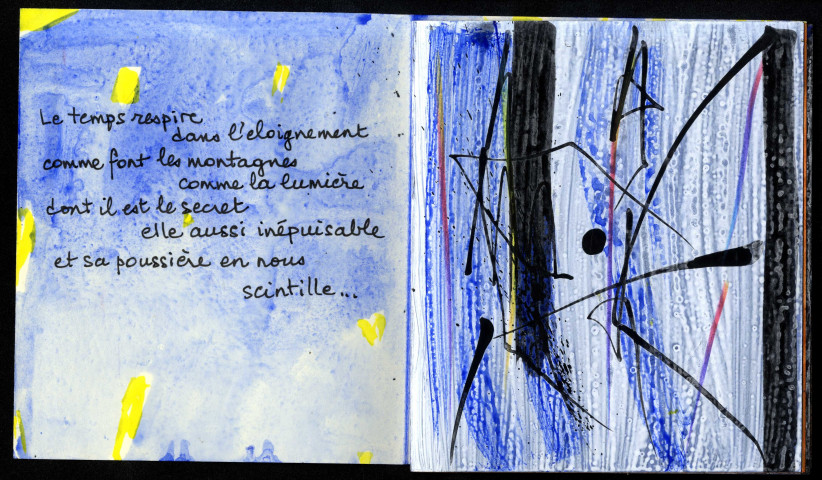 Le temps respire
dans l'eloignement
comme font les montagnes
comme la lumière
dont il est le secret
elle aussi inépuisable
et sa poussière en nous
scintille...